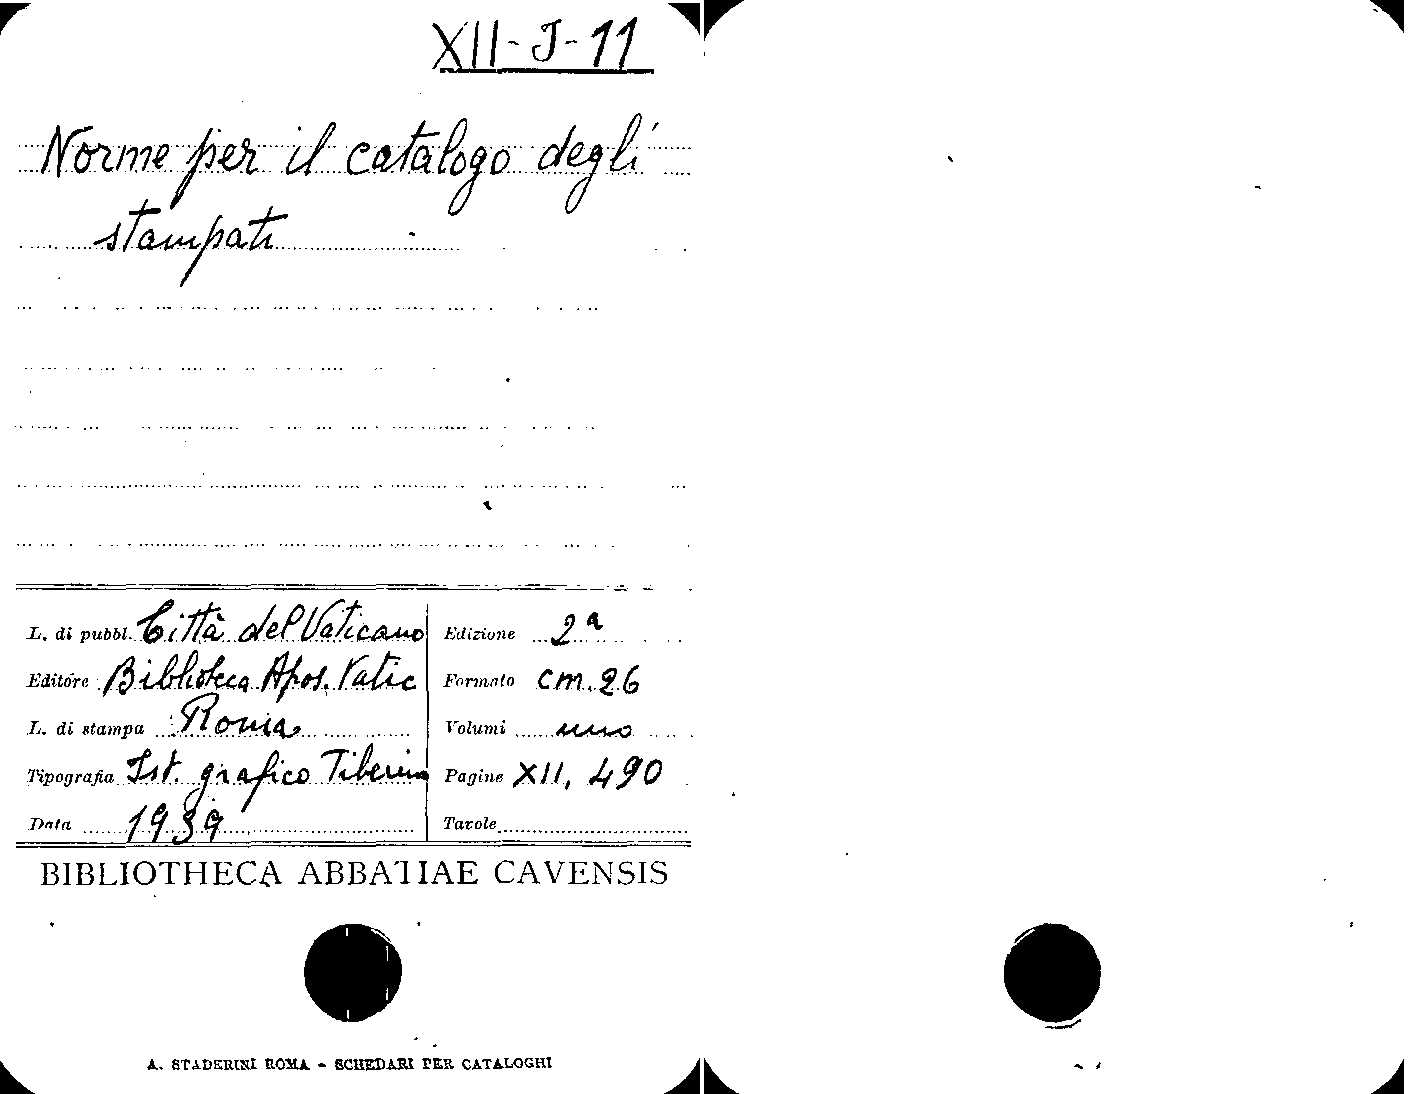 XII-J-11
Norme per il catalogo degli
stampati
L. di pubbl. Città del Vaticano
Editore Biblioteca Apos. Vatic
L. di stampa Roma
Tipografia Ist. grafico Tiberino
Data 1939
Edizione 2ª
Formato cm. 26
Volumi uno
Pagine XII, 490
Tavole
BIBLIOTHECA ABBATIAE CAVENSIS
A. STADERINI ROMA - SCHEDARI PER CATALOGHI